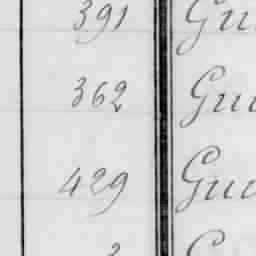 391 Gu
362 Gu
429 Gu